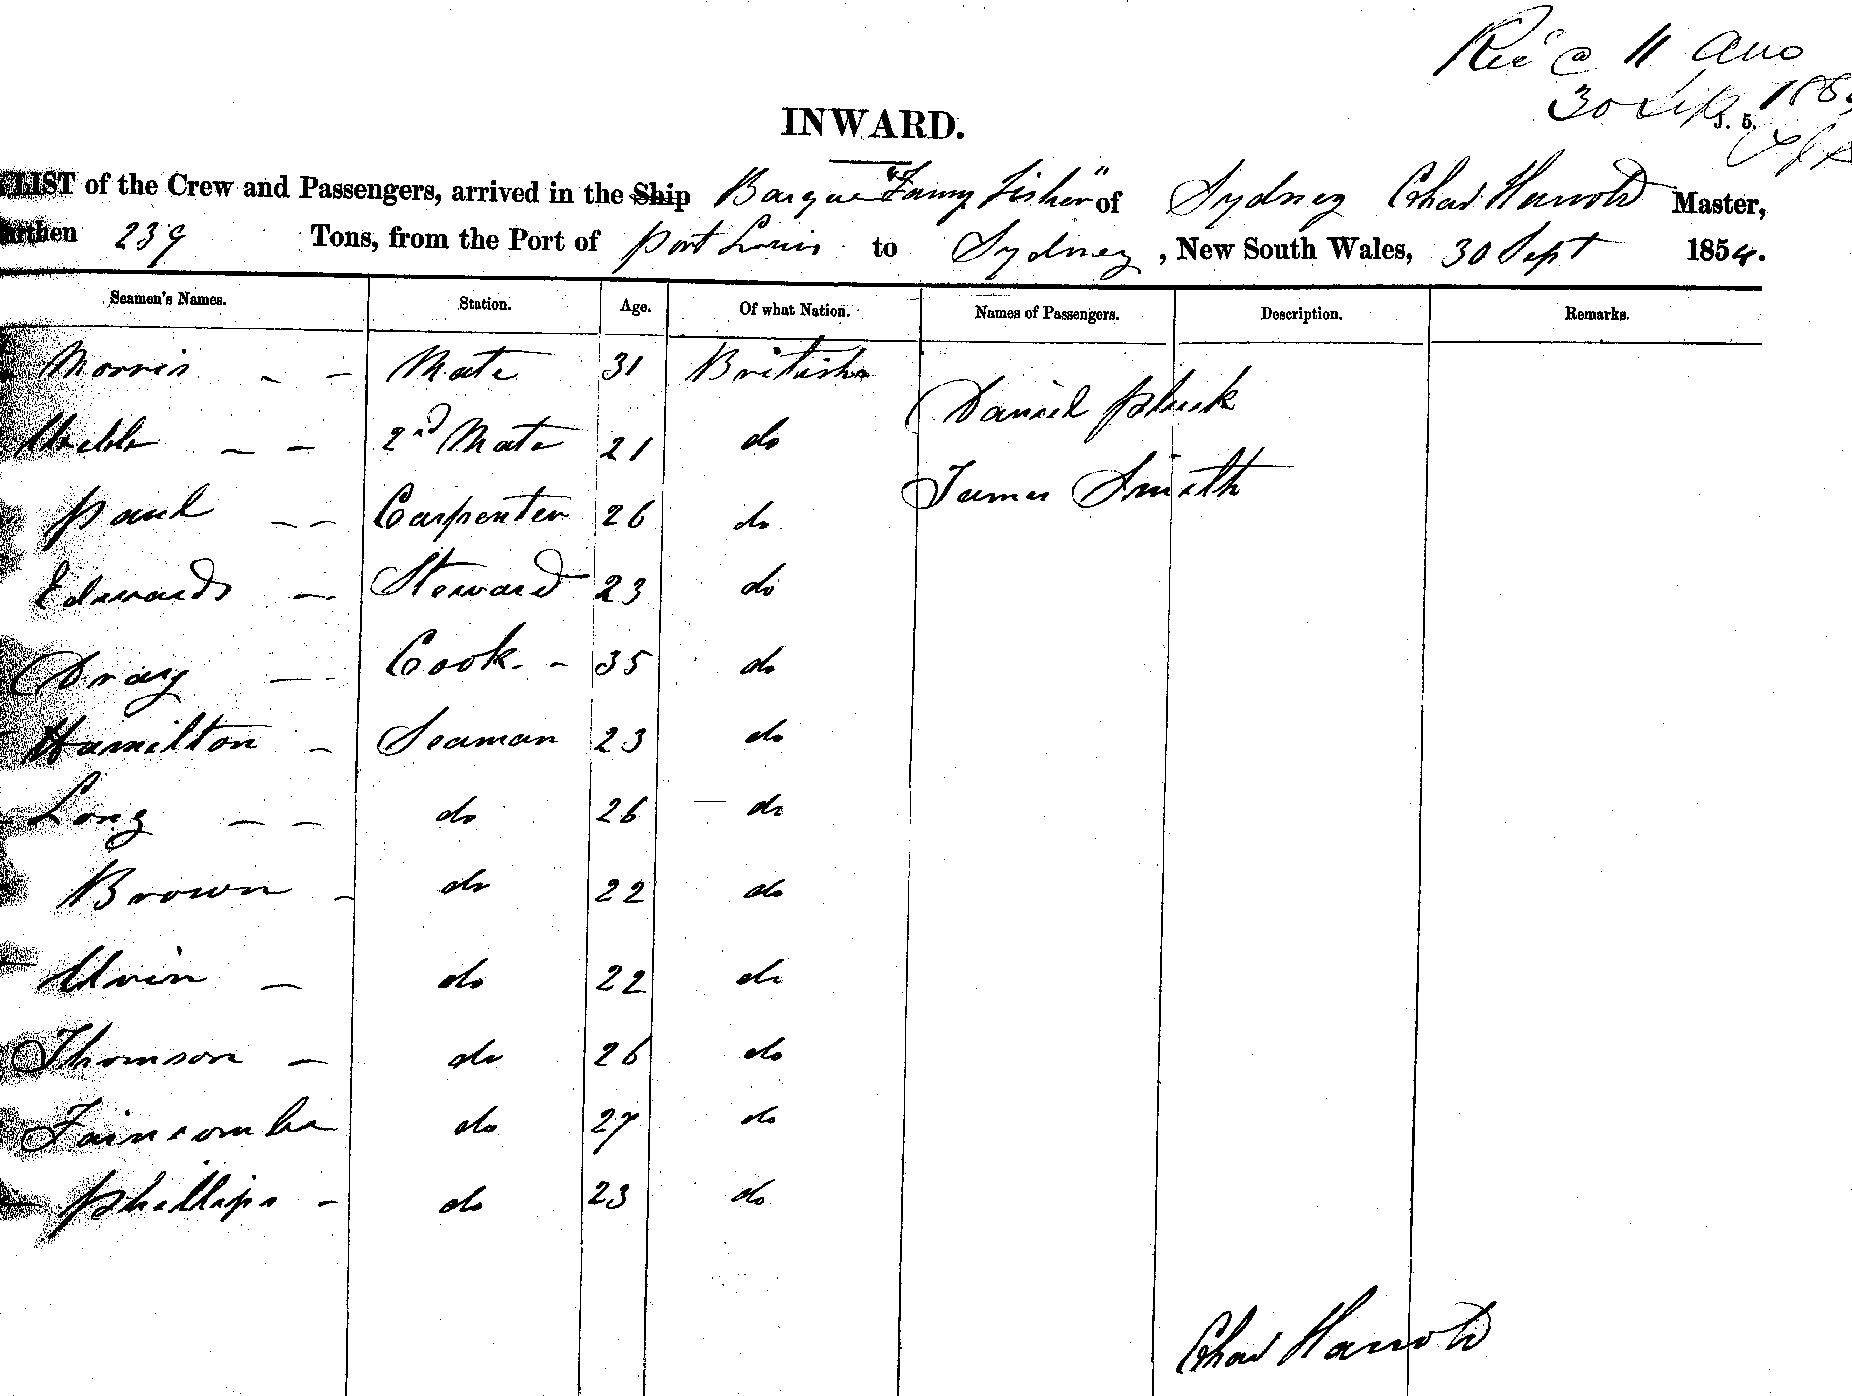 Rec'd 11 am
30 Sep. 185
J. 5.
INWARD.
LIST of the Crew and Passengers, arrived in the Ship Barque "Fanny Fisher" of Sydney Chas Harrold Master,
Burthen 239 Tons, from the Port of Port Louis to Sydney, New South Wales, 30 Sept 1854.
Seamen's Names. Station. Age. Of what Nation. Names of Passengers. Description. Remarks.
Morris - - Mate 31 British Daniel Pluck
Webb - - 2nd Mate 21 do
James Smith
Paul - - Carpenter 26 do
Edwards - Steward 23 do
Dray - Cook - 35 do
Hamilton - Seaman 23 do
Long - - do 26 do
Brown - do 22 do
do 22 do
Thomson - do 26 do
Faircombe do 27 do
Phillips - do 23 do
Chas Harrold